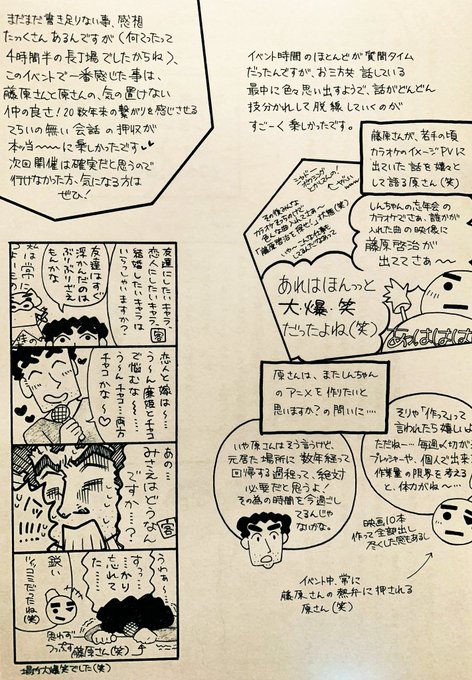 まだまだ書き足りない事、感想
たっくさんあるんですが（何てったって
4時間半の長丁場でしたからね）、
このイベントで一番感じた事は、
藤原さんと原さんの、気の置けない
仲の良さ！20数年来の繋がりを感じさせる
てらいの無い会話の押収が
本当〜〜〜に楽しかったです♥
次回開催は確実だと思うので
行けなかった方、気になる方は
ぜひ！
イベント時間のほとんどが質問タイム
だったんですが、お三方共話している
最中に色々思い出すようで、話がどんどん
枝分かれして脱線していくのが
すごーく楽しかったです。
藤原さんが、若手の頃
カラオケのイメージPVに
出ていた話を嬉々と
して語る原さん（笑）
しんちゃんの忘年会の
カラオケでさあ、誰かが
入れた曲の映像に
藤原啓治が
出ててさあ〜
あれはほんっと
大・爆・笑
だったよね（笑）
あははははは
原さんは、またしんちゃん
のアニメを作りたいと
思いますか？の問いに‥‥
そりゃ「作って」って
言われたら嬉しいよ
ただね…毎週〆切が
プレッシャーや、個人で出来る
作業量の限界を考える
と、体力がね〜…
いや原さんはそう言うけど、
元居た場所に数年経って
回帰する過程って、絶対
必要だと思うよ！
その為の時間を今過ごし
てるんじゃ
ないかな。
映画10本
作って全部出し
尽くした感もあるし
イベント中、常に
藤原さんの熱弁に押される
原さん（笑）
友達にしたいキャラ、
恋人にしたいキャラ
結婚したいキャラは
いらっしゃいますか？
客
友達はすぐ
浮かんだな
ぶりぶりざえ
もんかな
恋人と嫁は…
う〜ん廉姫とチャコ
で悩むな…
う〜んチャコ…両方
チャコかな〜♡
あの…
みさえはどうなん
ですか…？
客
うわぁ〜
すっっ…
かり
忘れて
た……
鋭い
ツッコミだったね
（笑）
思わず
つっぷす
藤原さん（笑）
場内大爆笑でした（笑）